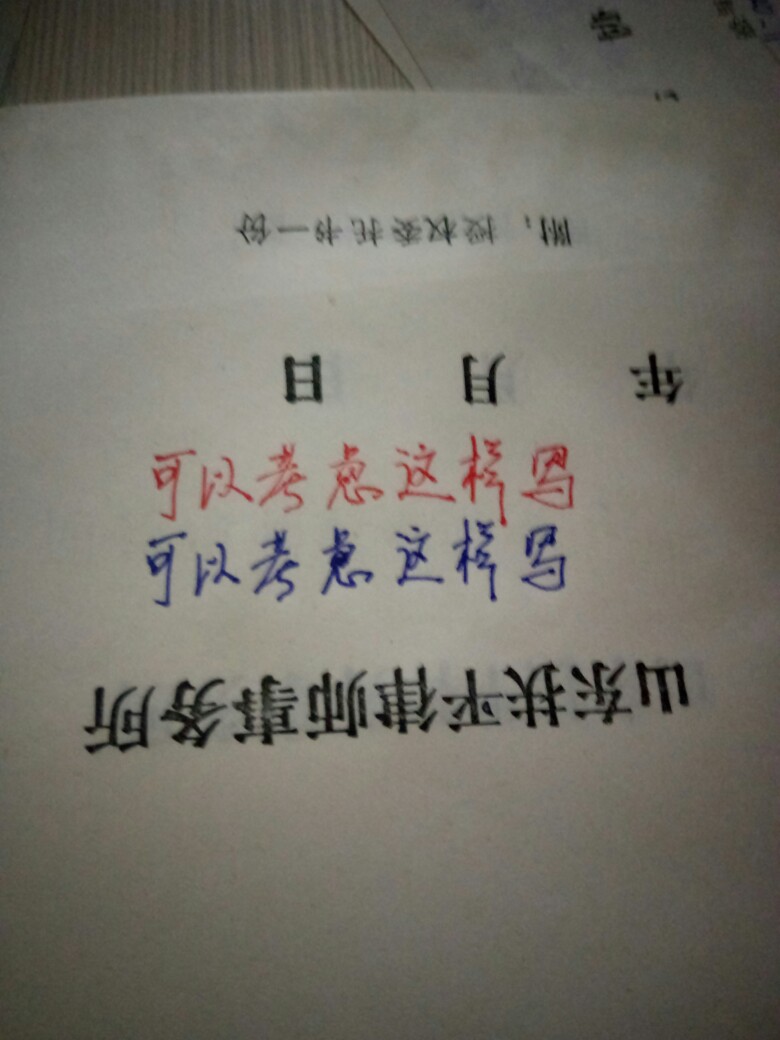 附：授权委托书一份
年 月 日
可以考虑这样写
可以考虑这样写
山东扶平律师事务所